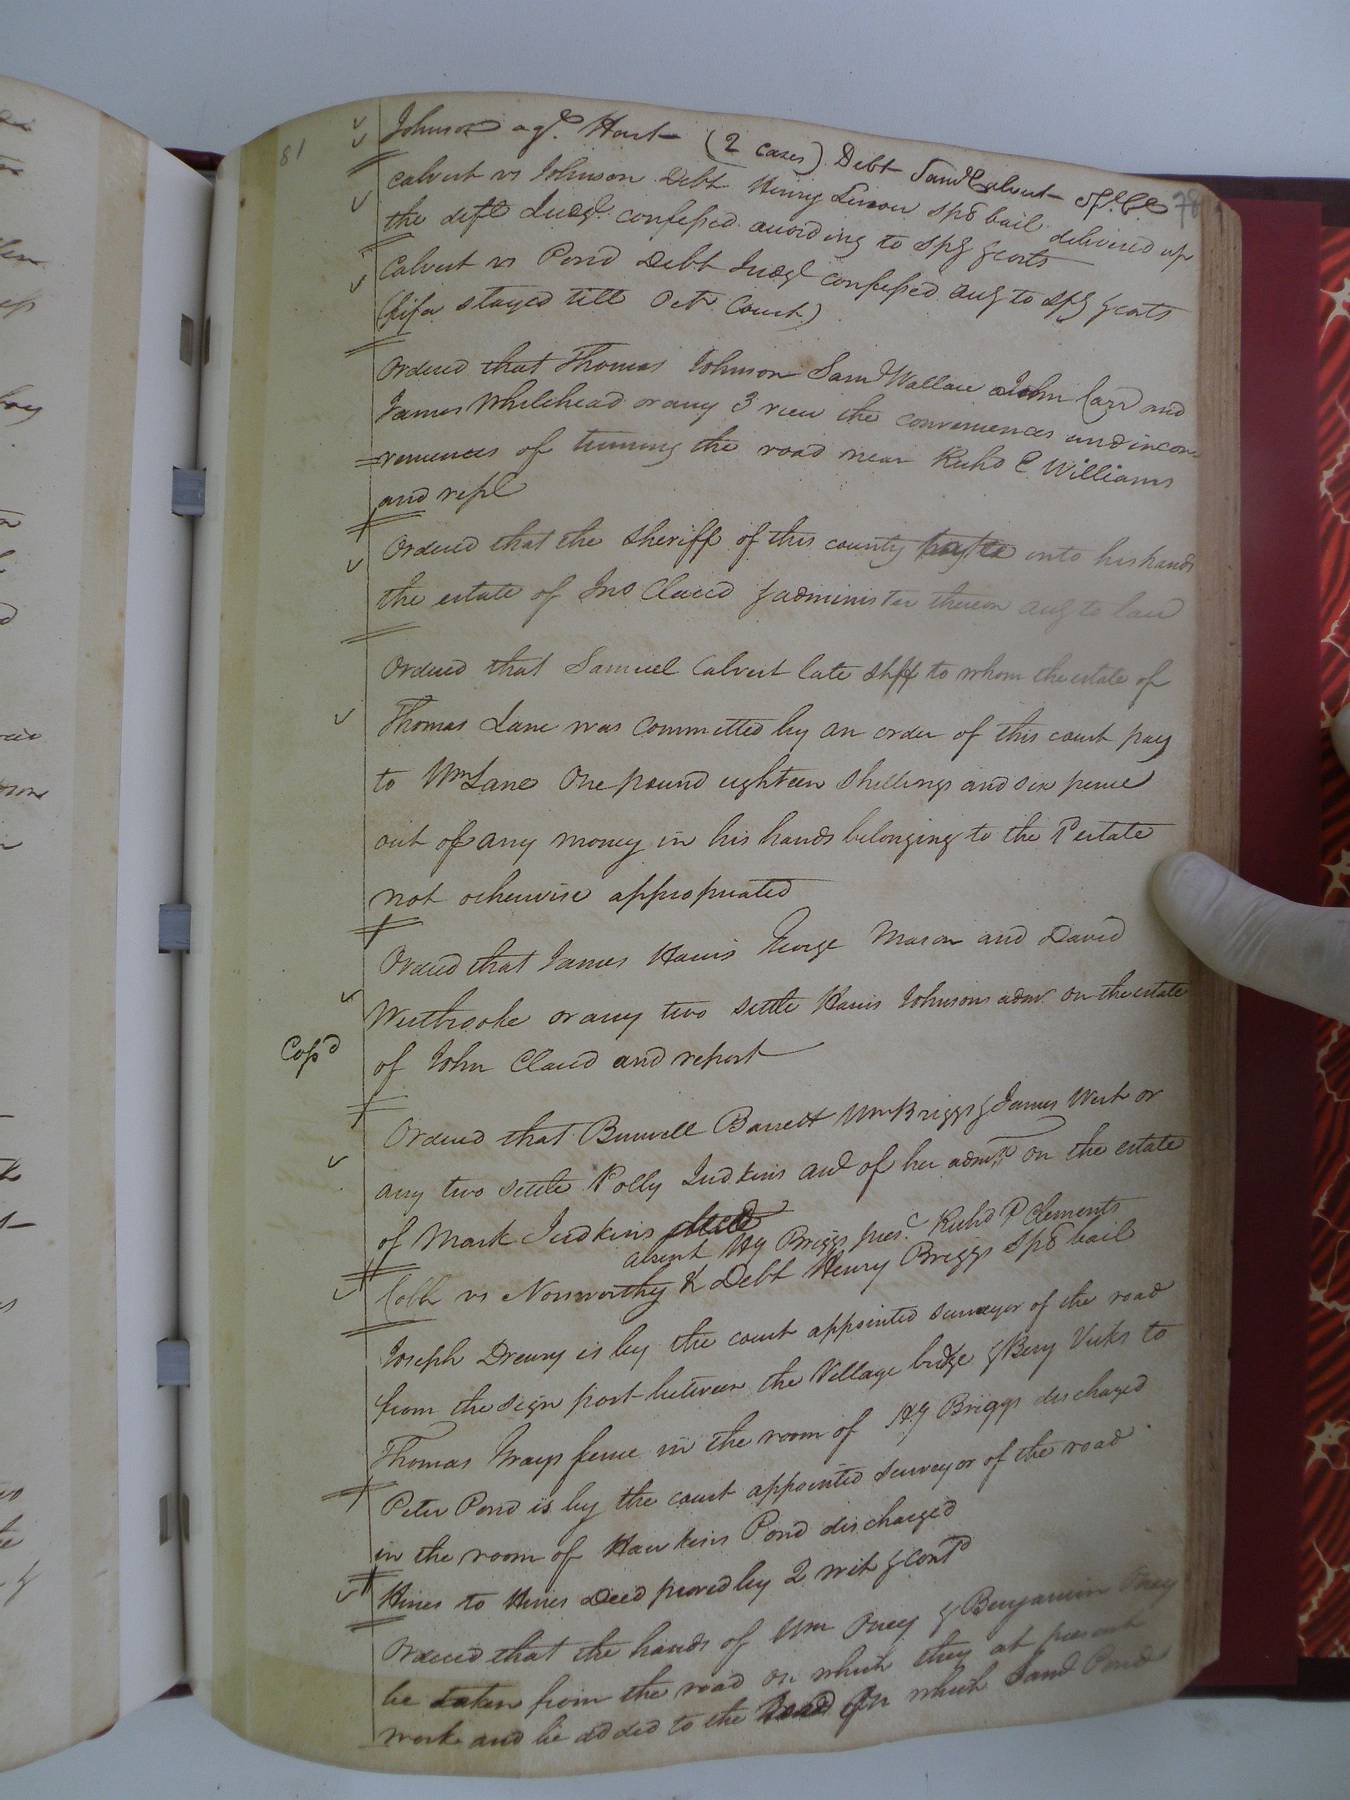 81
78
Johnson agt. Hart (2 cases) Debt Saml Calvert Sp. B
Calvert vs Johnson Debt Henry Simon Spb bail delivered up
the deft Judgt. confessed according to Spg & costs
Calvert vs Pond Debt Judgt confessed aug to spg & costs
(fifa stayed till Octr Court)
Ordered that Thomas Johnson Saml Wallace John Carr and
James Whitehead or any 3 view the conveniences and incon-
veniences of turning the road near Richd E Williams
and rept
Ordered that the Sheriff of this county take into his hands
the estate of Jno Claud & administer thereon aug to law
Ordered that Samuel Calvert late Shff to whom the estate of
Thomas Lane was committed by an order of this court pay
to Wm Lane One pound eighteen shillings and six pence
out of any money in his hands belonging to the sd estate
not otherwise appropriated
Ordered that James Harris George Mason and David
Westbrooke or any two settle Harris Johnsons admr on the estate
Cop'd
of John Claud and report
Ordered that Burwell Barrett Wm Briggs & James West or
any two settle Polly Judkins acct of her admn on the estate
of Mark Judkins decd
absent Hy Briggs prest Richd P Clements
Cobb vs Norsworthy & Debt Henry Briggs Spb bail
Joseph Drewry is by the court appointed surveyor of the road
from the sign post between the Village bridge & Berry Vicks to
Thomas Grays fence in the room of Hy Briggs discharged
Peter Pond is by the court appointed surveyor of the road
in the room of Hawkins Pond discharged
Hines to Hines Deed proved by 2 wit & cont'd
Ordered that the hands of Wm Oney & Benjamin Oney
be taken from the road on which they at present
work and be added to the Road on which Saml Pond